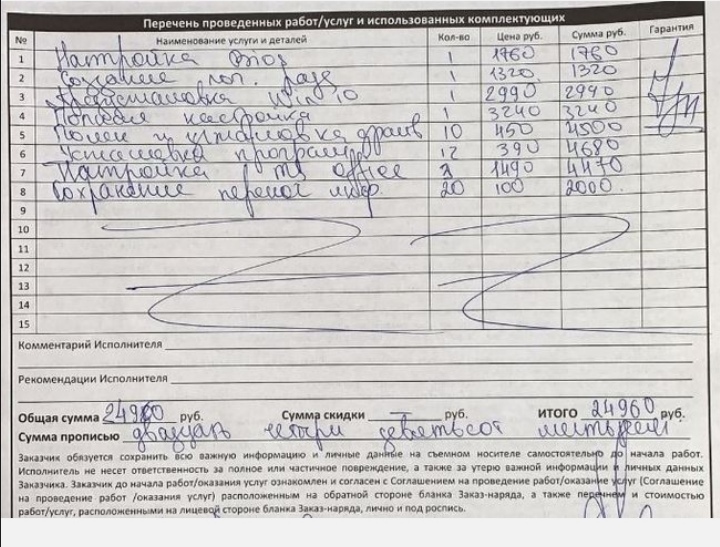 Перечень проведенных работ/услуг и использованных комплектующих
№ Наименование услуги и деталей Кол-во Цена руб. Сумма руб. Гарантия
1 Настройка Bios 1 1760 1760
2 Создание лог. разд 1 1320 1320
3 Предустановка Win 10 1 2990 2990
4 Полная настройка 1 3240 3240
5 Поиск и установка драйв 10 450 4500
6 Установка программ 12 390 4680
7 Настройка MS office 3 1490 4470
8 Сохранение перенос инфор. 20 100 2000
9
10
11
12
13
14
15
Комментарий Исполнителя
Рекомендации Исполнителя
Общая сумма 24960 руб. Сумма скидки — руб. ИТОГО 24960 руб.
Сумма прописью двадцать четыри девятьсот шестьдесят
Заказчик обязуется сохранить всю важную информацию и личные данные на съемном носителе самостоятельно до начала работ.
Исполнитель не несет ответственность за полное или частичное повреждение, а также за утерю важной информации и личных данных
Заказчика. Заказчик до начала работ/оказания услуг ознакомлен и согласен с Соглашением на проведение работ/оказание услуг (Соглашение
на проведение работ /оказания услуг) расположенным на обратной стороне бланка Заказ-наряда, а также перечнем и стоимостью
работ/услуг, расположенными на лицевой стороне бланка Заказ-наряда, лично и под роспись.